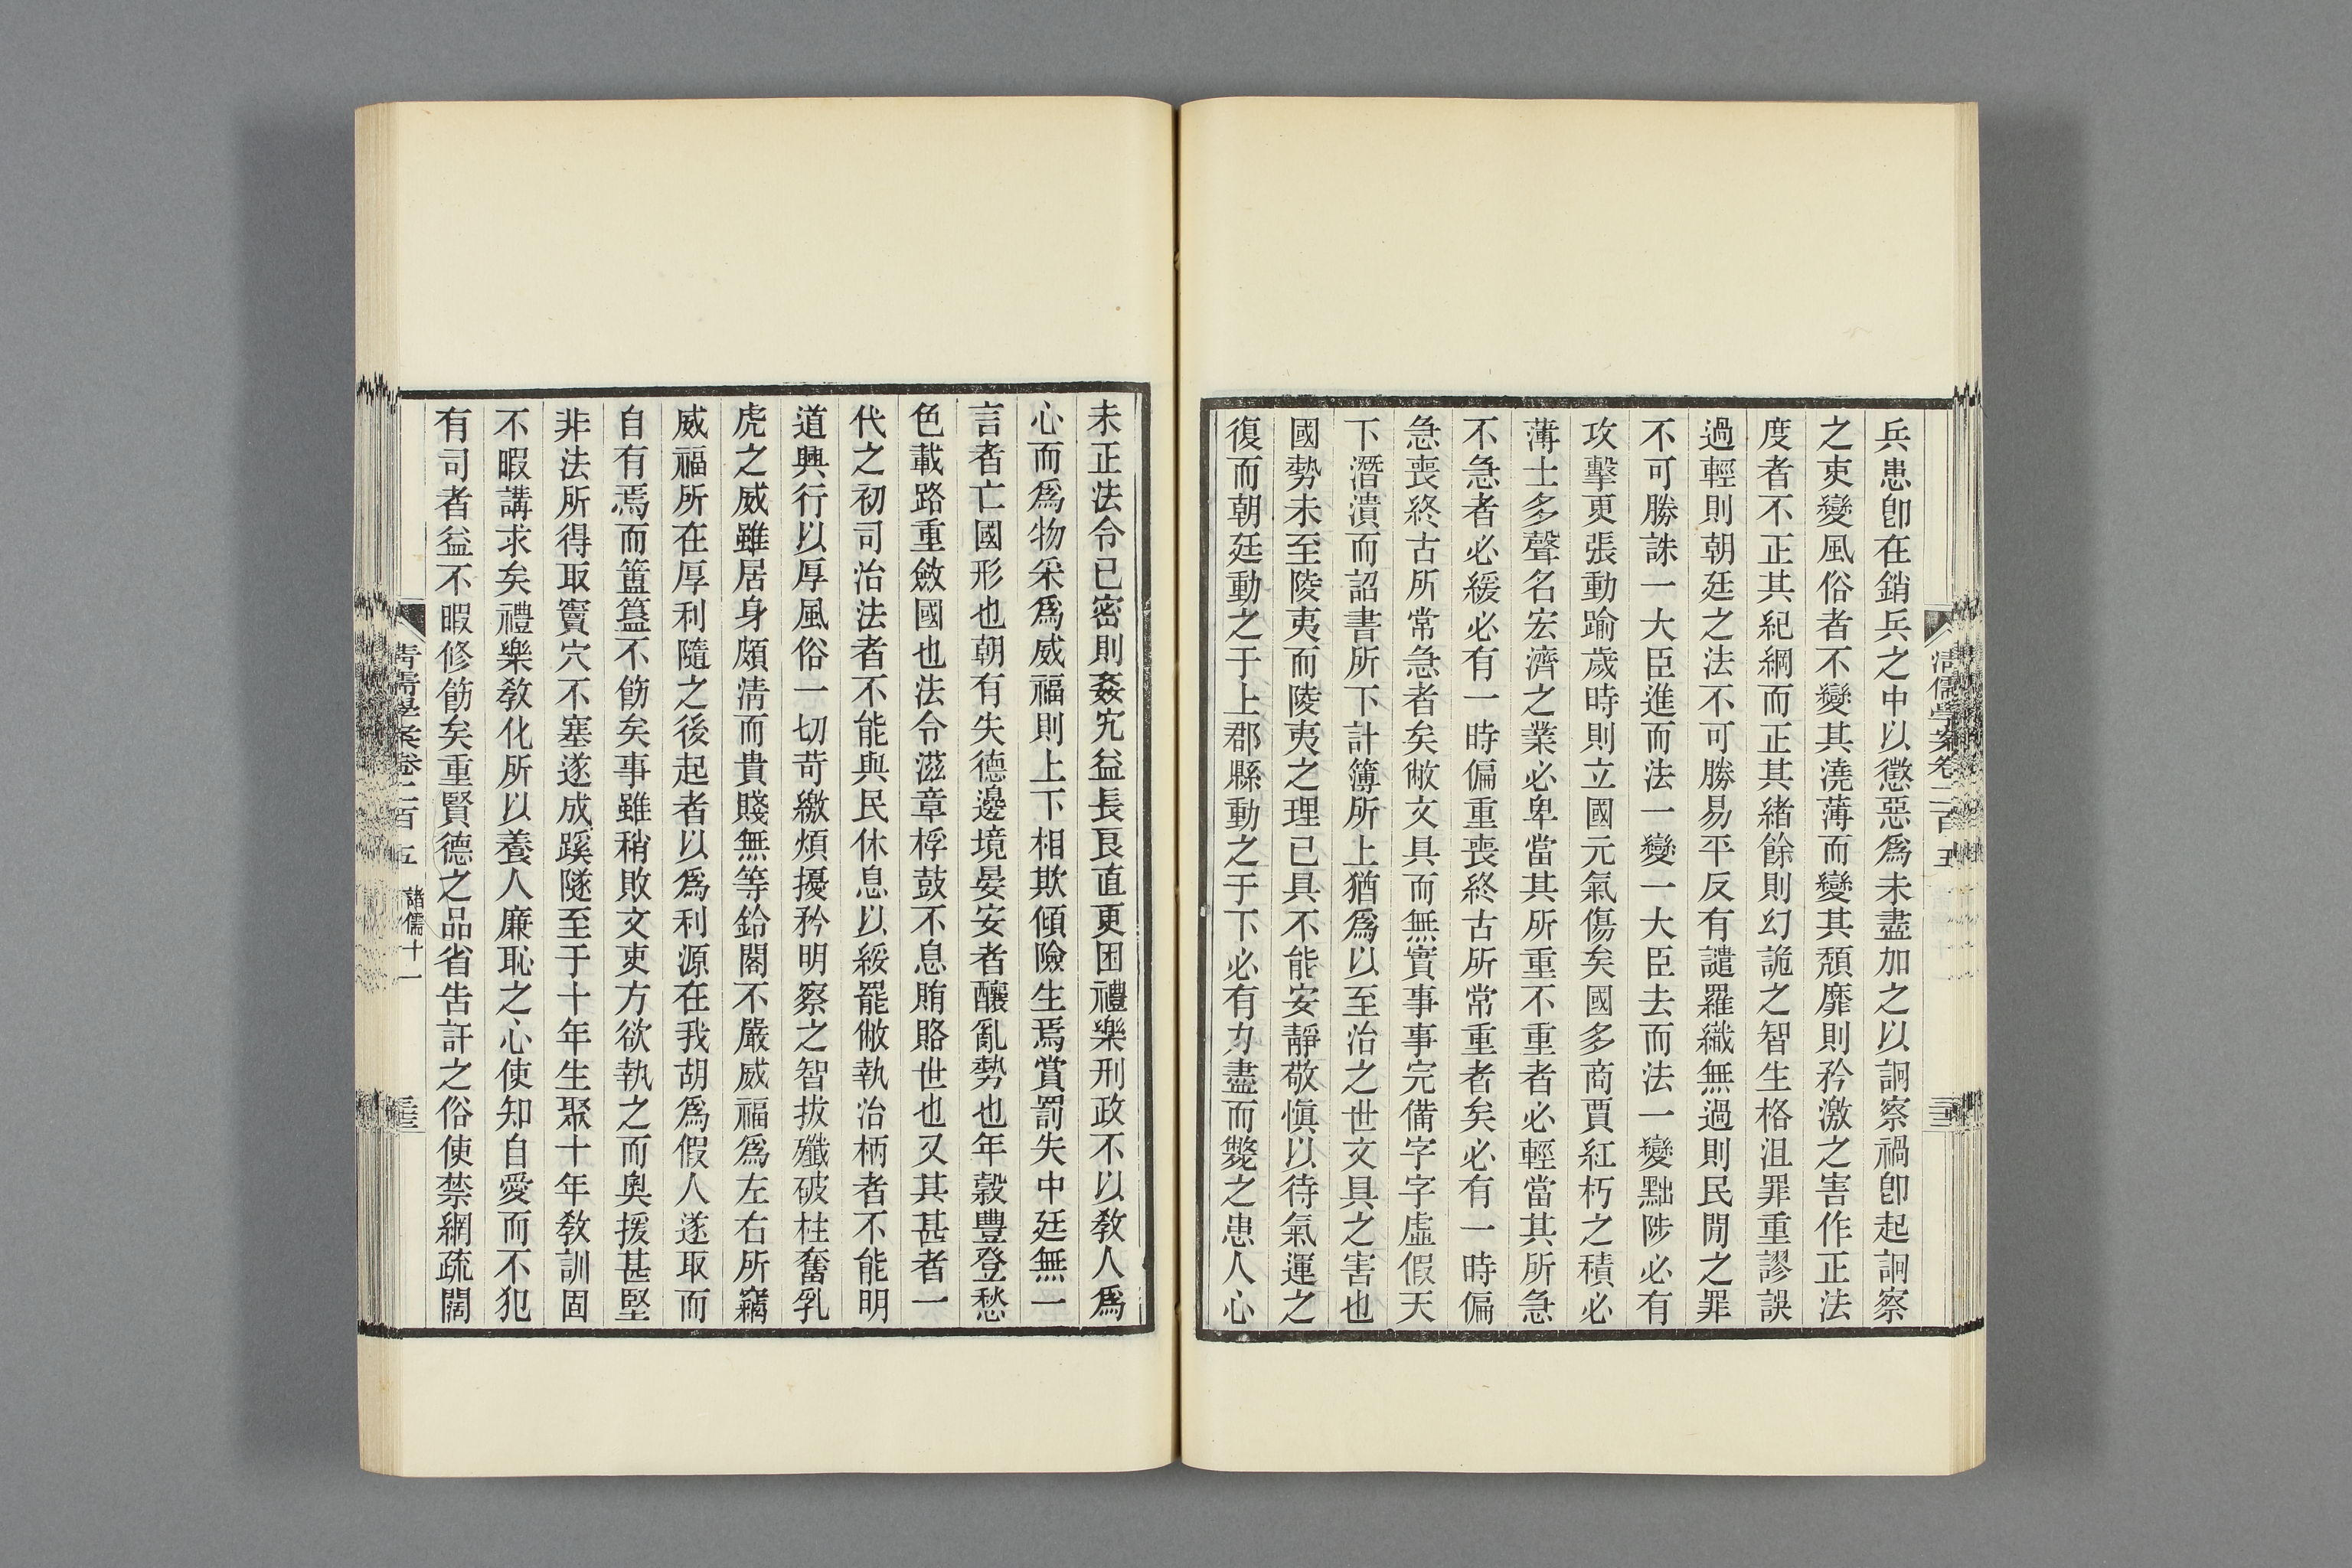 兵患卽在銷兵之中以懲惡爲未盡加之以詗察禍卽起詗察
之吏變風俗者不變其澆薄而變其頹靡則矜激之害作正法
度者不正其紀綱而正其緒餘則幻詭之智生格沮罪重謬誤
過輕則朝廷之法不可勝易平反有譴羅織無過則民閒之罪
不可勝誅一大臣進而法一變一大臣去而法一變黜陟必有
攻擊更張動踰歲時則立國元氣傷矣國多商賈紅朽之積必
薄士多聲名宏濟之業必卑當其所重不重者必輕當其所急
不急者必緩必有一時偏重喪終古所常重者矣必有一時偏
急喪終古所常急者矣敝文具而無實事事完備字字虛假天
下潛潰而詔書所下計簿所上猶爲以至治之世文具之害也
國勢未至陵夷而陵夷之理已具不能安靜敬愼以待氣運之
復而朝廷動之于上郡縣動之于下必有力盡而斃之患人心
清儒學案卷二百五
未正法令已密則姦宄益長良直更困禮樂刑政不以敎人爲
心而爲物采爲威福則上下相欺傾險生焉賞罰失中廷無一
言者亡國形也朝有失德邊境晏安者釀亂勢也年穀豐登愁
色載路重斂國也法令滋章桴鼓不息賄賂世也又其甚者一
代之初司治法者不能與民休息以綏罷敝執治柄者不能明
道興行以厚風俗一切苛繳煩擾矜明察之智拔殲破柱奮乳
虎之威雖居身頗淸而貴賤無等鈴閣不嚴威福爲左右所竊
威福所在厚利隨之後起者以爲利源在我胡爲假人遂取而
自有焉而簠簋不飭矣事雖稍敗文吏方欲執之而奧援甚堅
非法所得取竇穴不塞遂成蹊隧至于十年生聚十年敎訓固
不暇講求矣禮樂敎化所以養人廉恥之心使知自愛而不犯
有司者益不暇修飭矣重賢德之品省告訐之俗使禁網疏闊
清儒學案卷二百五 諸儒十一